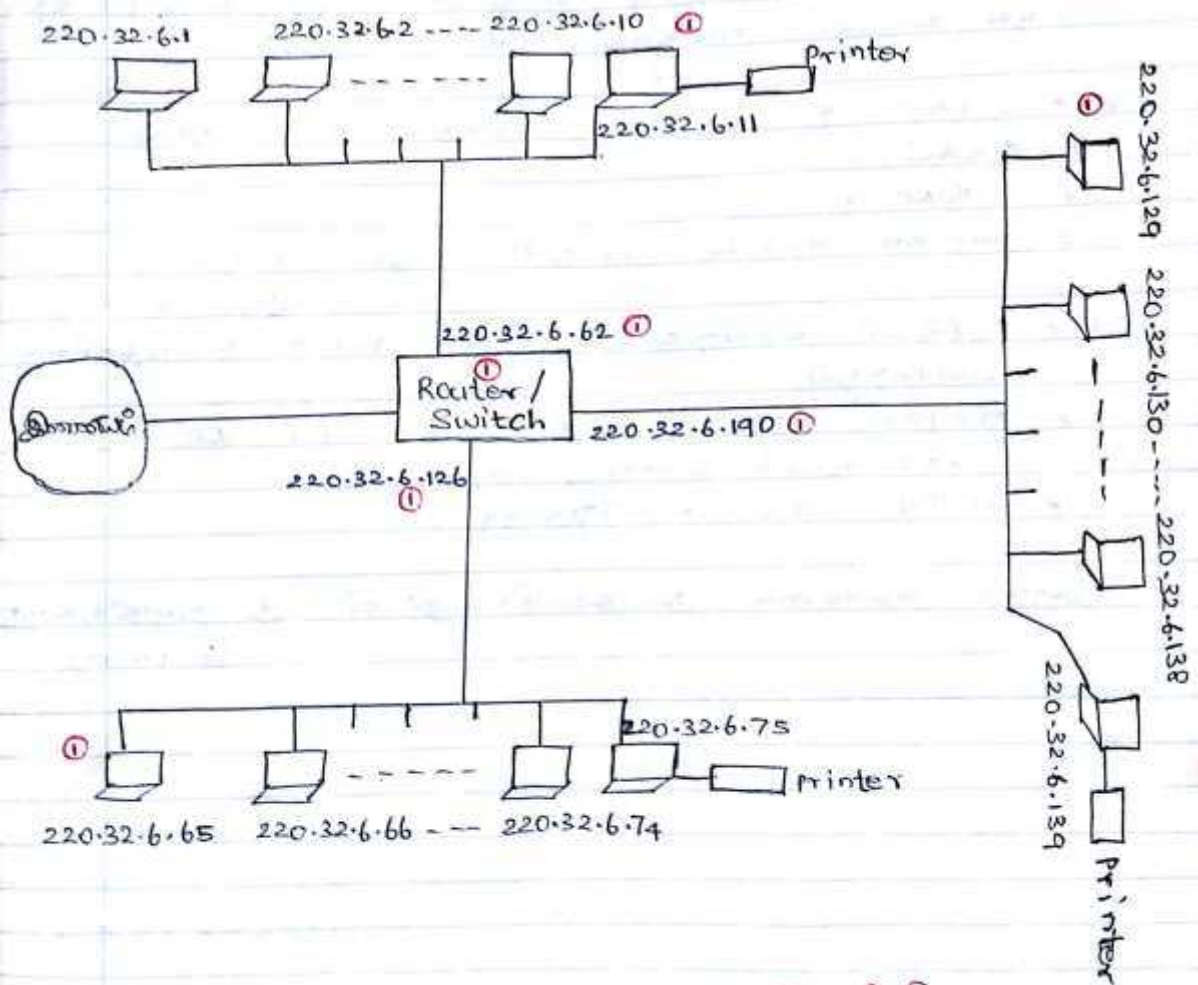 220.32.6.1 220.32.6.2 ---- 220.32.6.10 ①
printer
220.32.6.11
① 220.32.6.129
220.32.6.130 ---- 220.32.6.138
220.32.6.62 ①
①
Router/
Switch
220.32.6.190 ①
220.32.6.126
①
220.32.6.139
printer
220.32.6.75
①
printer
220.32.6.65 220.32.6.66 --- 220.32.6.74